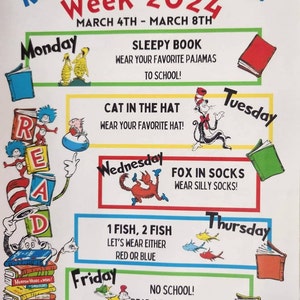 Week 2024
MARCH 4TH - MARCH 8TH
Monday
SLEEPY BOOK
WEAR YOUR FAVORITE PAJAMAS
TO SCHOOL!
CAT IN THE HAT
Tuesday
WEAR YOUR FAVORITE HAT!
Wednesday
FOX IN SOCKS
WEAR SILLY SOCKS!
READ
1 FISH, 2 FISH
Thursday
LET'S WEAR EITHER
RED OR BLUE
Friday
NO SCHOOL!